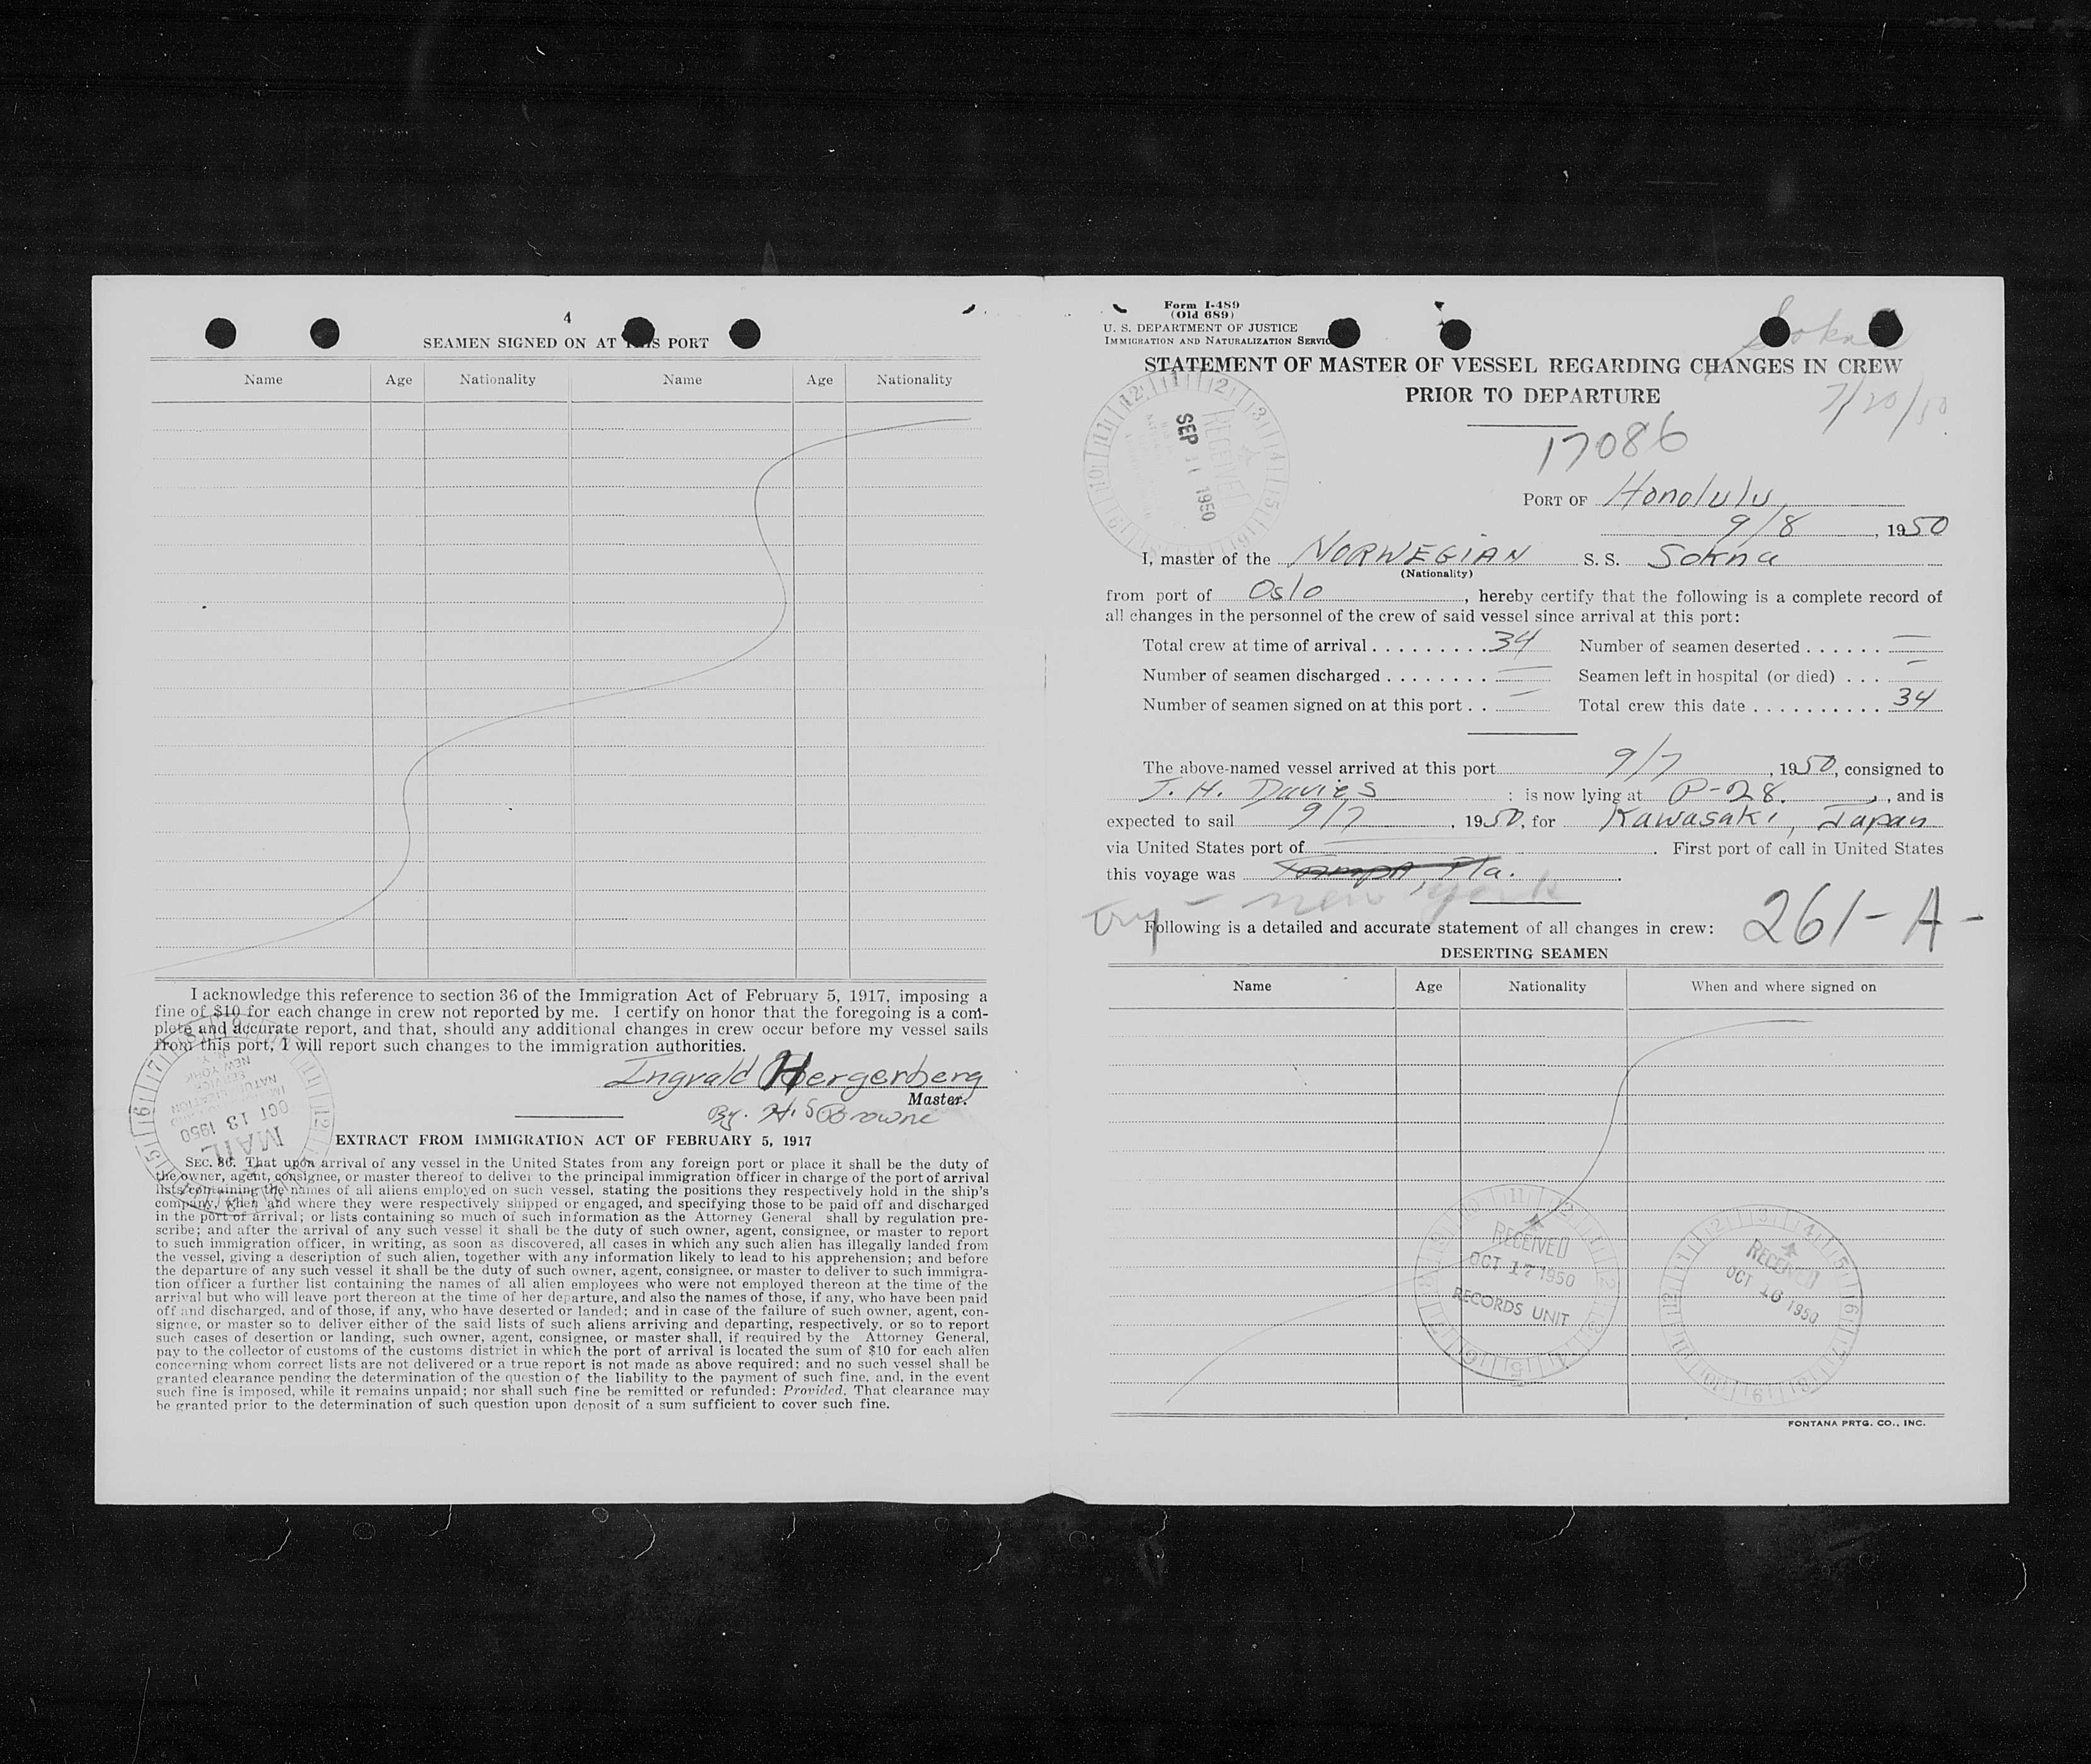 4
SEAMEN SIGNED ON AT THIS PORT
Name Age Nationality Name Age Nationality
I acknowledge this reference to section 36 of the Immigration Act of February 5, 1917, imposing a
fine of $10 for each change in crew not reported by me. I certify on honor that the foregoing is a com-
plete and accurate report, and that, should any additional changes in crew occur before my vessel sails
from this port, I will report such changes to the immigration authorities.
Ingvald Hergerberg
Master.
By. H. S Browne
NEW YORK
OCT 13 1950
MAIL
EXTRACT FROM IMMIGRATION ACT OF FEBRUARY 5, 1917
SEC. 36. That upon arrival of any vessel in the United States from any foreign port or place it shall be the duty of
the owner, agent, consignee, or master thereof to deliver to the principal immigration officer in charge of the port of arrival
lists containing the names of all aliens employed on such vessel, stating the positions they respectively hold in the ship's
company, when and where they were respectively shipped or engaged, and specifying those to be paid off and discharged
in the port of arrival; or lists containing so much of such information as the Attorney General shall by regulation pre-
scribe; and after the arrival of any such vessel it shall be the duty of such owner, agent, consignee, or master to report
to such immigration officer, in writing, as soon as discovered, all cases in which any such alien has illegally landed from
the vessel, giving a description of such alien, together with any information likely to lead to his apprehension; and before
the departure of any such vessel it shall be the duty of such owner, agent, consignee, or master to deliver to such immigra-
tion officer a further list containing the names of all alien employees who were not employed thereon at the time of the
arrival but who will leave port thereon at the time of her departure, and also the names of those, if any, who have been paid
off and discharged, and of those, if any, who have deserted or landed; and in case of the failure of such owner, agent, con-
signee, or master so to deliver either of the said lists of such aliens arriving and departing, respectively, or so to report
such cases of desertion or landing, such owner, agent, consignee, or master shall, if required by the Attorney General,
pay to the collector of customs of the customs district in which the port of arrival is located the sum of $10 for each alien
concerning whom correct lists are not delivered or a true report is not made as above required; and no such vessel shall be
granted clearance pending the determination of the question of the liability to the payment of such fine, and, in the event
such fine is imposed, while it remains unpaid; nor shall such fine be remitted or refunded: Provided, That clearance may
be granted prior to the determination of such question upon deposit of a sum sufficient to cover such fine.
Form I-489
(Old 689)
U. S. DEPARTMENT OF JUSTICE
IMMIGRATION AND NATURALIZATION SERVICE
Sokna
STATEMENT OF MASTER OF VESSEL REGARDING CHANGES IN CREW
PRIOR TO DEPARTURE
7/20/50
RECEIVED
SEP 11 1950
17086
PORT OF Honolulu
9/8, 1950
I, master of the NORWEGIAN S. S. Sokna
(Nationality)
from port of Oslo, hereby certify that the following is a complete record of
all changes in the personnel of the crew of said vessel since arrival at this port:
Total crew at time of arrival . . . . . . . . . 34 Number of seamen deserted . . . . . . —
Number of seamen discharged . . . . . . . . — Seamen left in hospital (or died) . . . —
Number of seamen signed on at this port . . — Total crew this date . . . . . . . . . . 34
The above-named vessel arrived at this port 9/7, 1950, consigned to
T. H. Davies : is now lying at P-28., and is
expected to sail 9/7, 1950, for Kawasaki, Japan
via United States port of —. First port of call in United States
this voyage was Tampa, Fla.
try - new york
261-A-
Following is a detailed and accurate statement of all changes in crew:
DESERTING SEAMEN
Name Age Nationality When and where signed on
RECEIVED
OCT 17 1950
RECORDS UNIT
RECEIVED
OCT 16 1950
FONTANA PRTG. CO., INC.